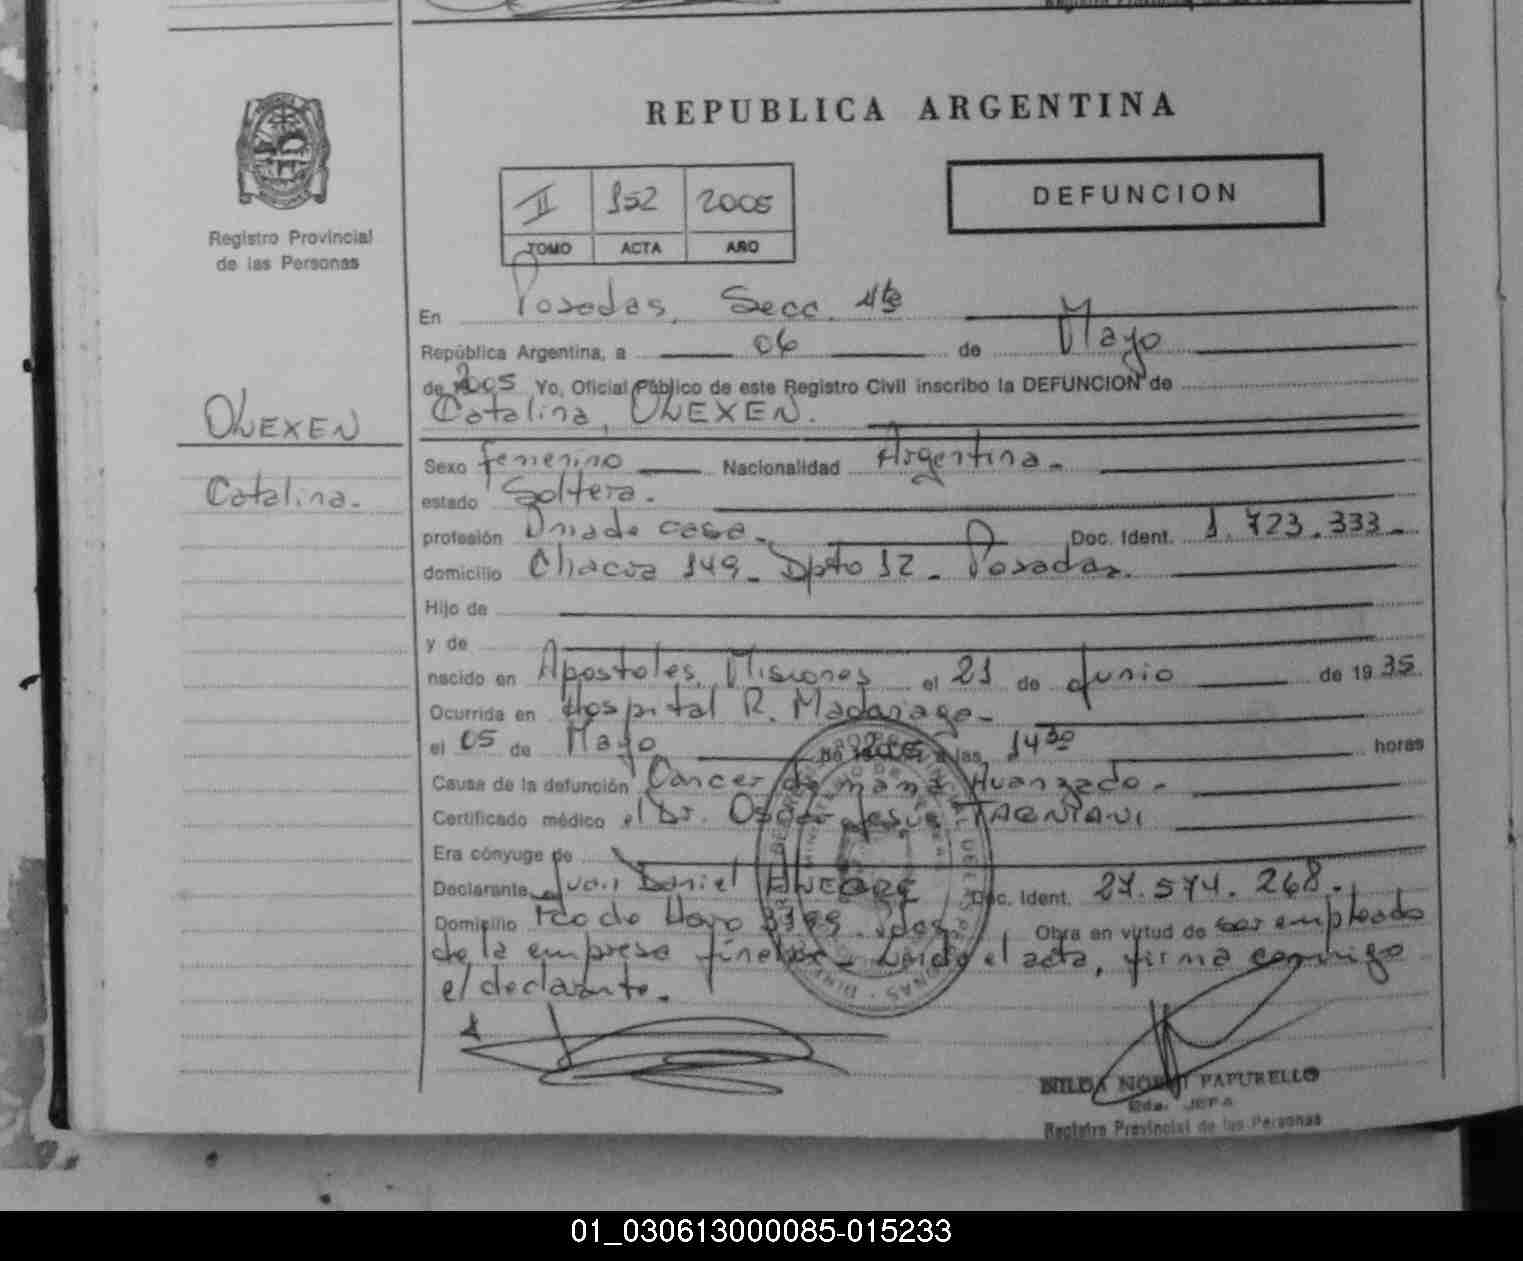 REPUBLICA ARGENTINA
Registro Provincial
de las Personas
II 152 2005
TOMO ACTA AÑO
DEFUNCION
En Posadas, Secc. 4ta
República Argentina, a 06 de Mayo
de 2005 Yo, Oficial Público de este Registro Civil inscribo la DEFUNCION de
Catalina, OLEXEN.
OLEXEN
Catalina.
Sexo femenino Nacionalidad Argentina.
estado Soltera.
profesión Ama de casa. Doc. Ident. 1.723.333.
domicilio Chacra 149. Dpto 12. Posadas.
Hijo de
y de
nacido en Apostoles, Misiones el 21 de Junio de 19 35
Ocurrida en Hospital R. Madariaga.
el 05 de Mayo de 2005 a las 14 30 horas
Cause de la defunción Cancer de mama Avanzado.
Certificado médico el Dr.
Era cónyuge de
Declarante Juan Daniel Doc. Ident. 27.574.268.
Domicilio Obra en virtud de ser empleado
de la empresa fúnebre. Leida el acta, firma conmigo
el declarante.
Registro Provincial de las Personas
01_030613000085-015233